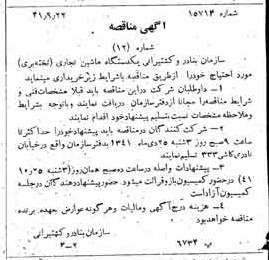 شماره ۱۵۷۱۴ ۴۱٫۹٫۲۲
آگهی مناقصه
شماره (۱۲)
سازمان بنادر و کشتیرانی یکدستگاه ماشین نجاری (تخته‌بری)
مورد احتیاج خود را از طریق مناقصه باشرایط زیر خریداری مینماید
۱ـ داوطلبان شرکت در این مناقصه باید قبلا مشخصات فنی و
شرایط مناقصه را مجانا از دفتر سازمان دریافت نمایند و باتوجه بشرایط
و ملاحظه مشخصات نسبت بتسلیم پیشنهاد خود اقدام نمایند
۲ـ شرکت کنندگان در مناقصه باید پیشنهاد خود را حداکثر تا
ساعت ۹ صبح روز ۳شنبه ۲۵ دی ماه ۱۳۴۱ بدفتر سازمان واقع در خیابان
نادری کاشی ۳۲۳ تسلیم نمایند
۳ـ پیشنهادات واصله در ساعت ده صبح همان روز (۳شنبه ۲۵ر۱۰
۴۱) در حضور کمیسیون باز و قرائت میشود. حضور پیشنهاد دهندگان در جلسه
کمیسیون آزاد است
۴ـ هزینه درج آگهی و مالیات و هر گونه عوارض بعهده برنده
مناقصه خواهد بود
سازمان بنادر و کشتیرانی
پ ۶۷۳۴ ۳ـ۲